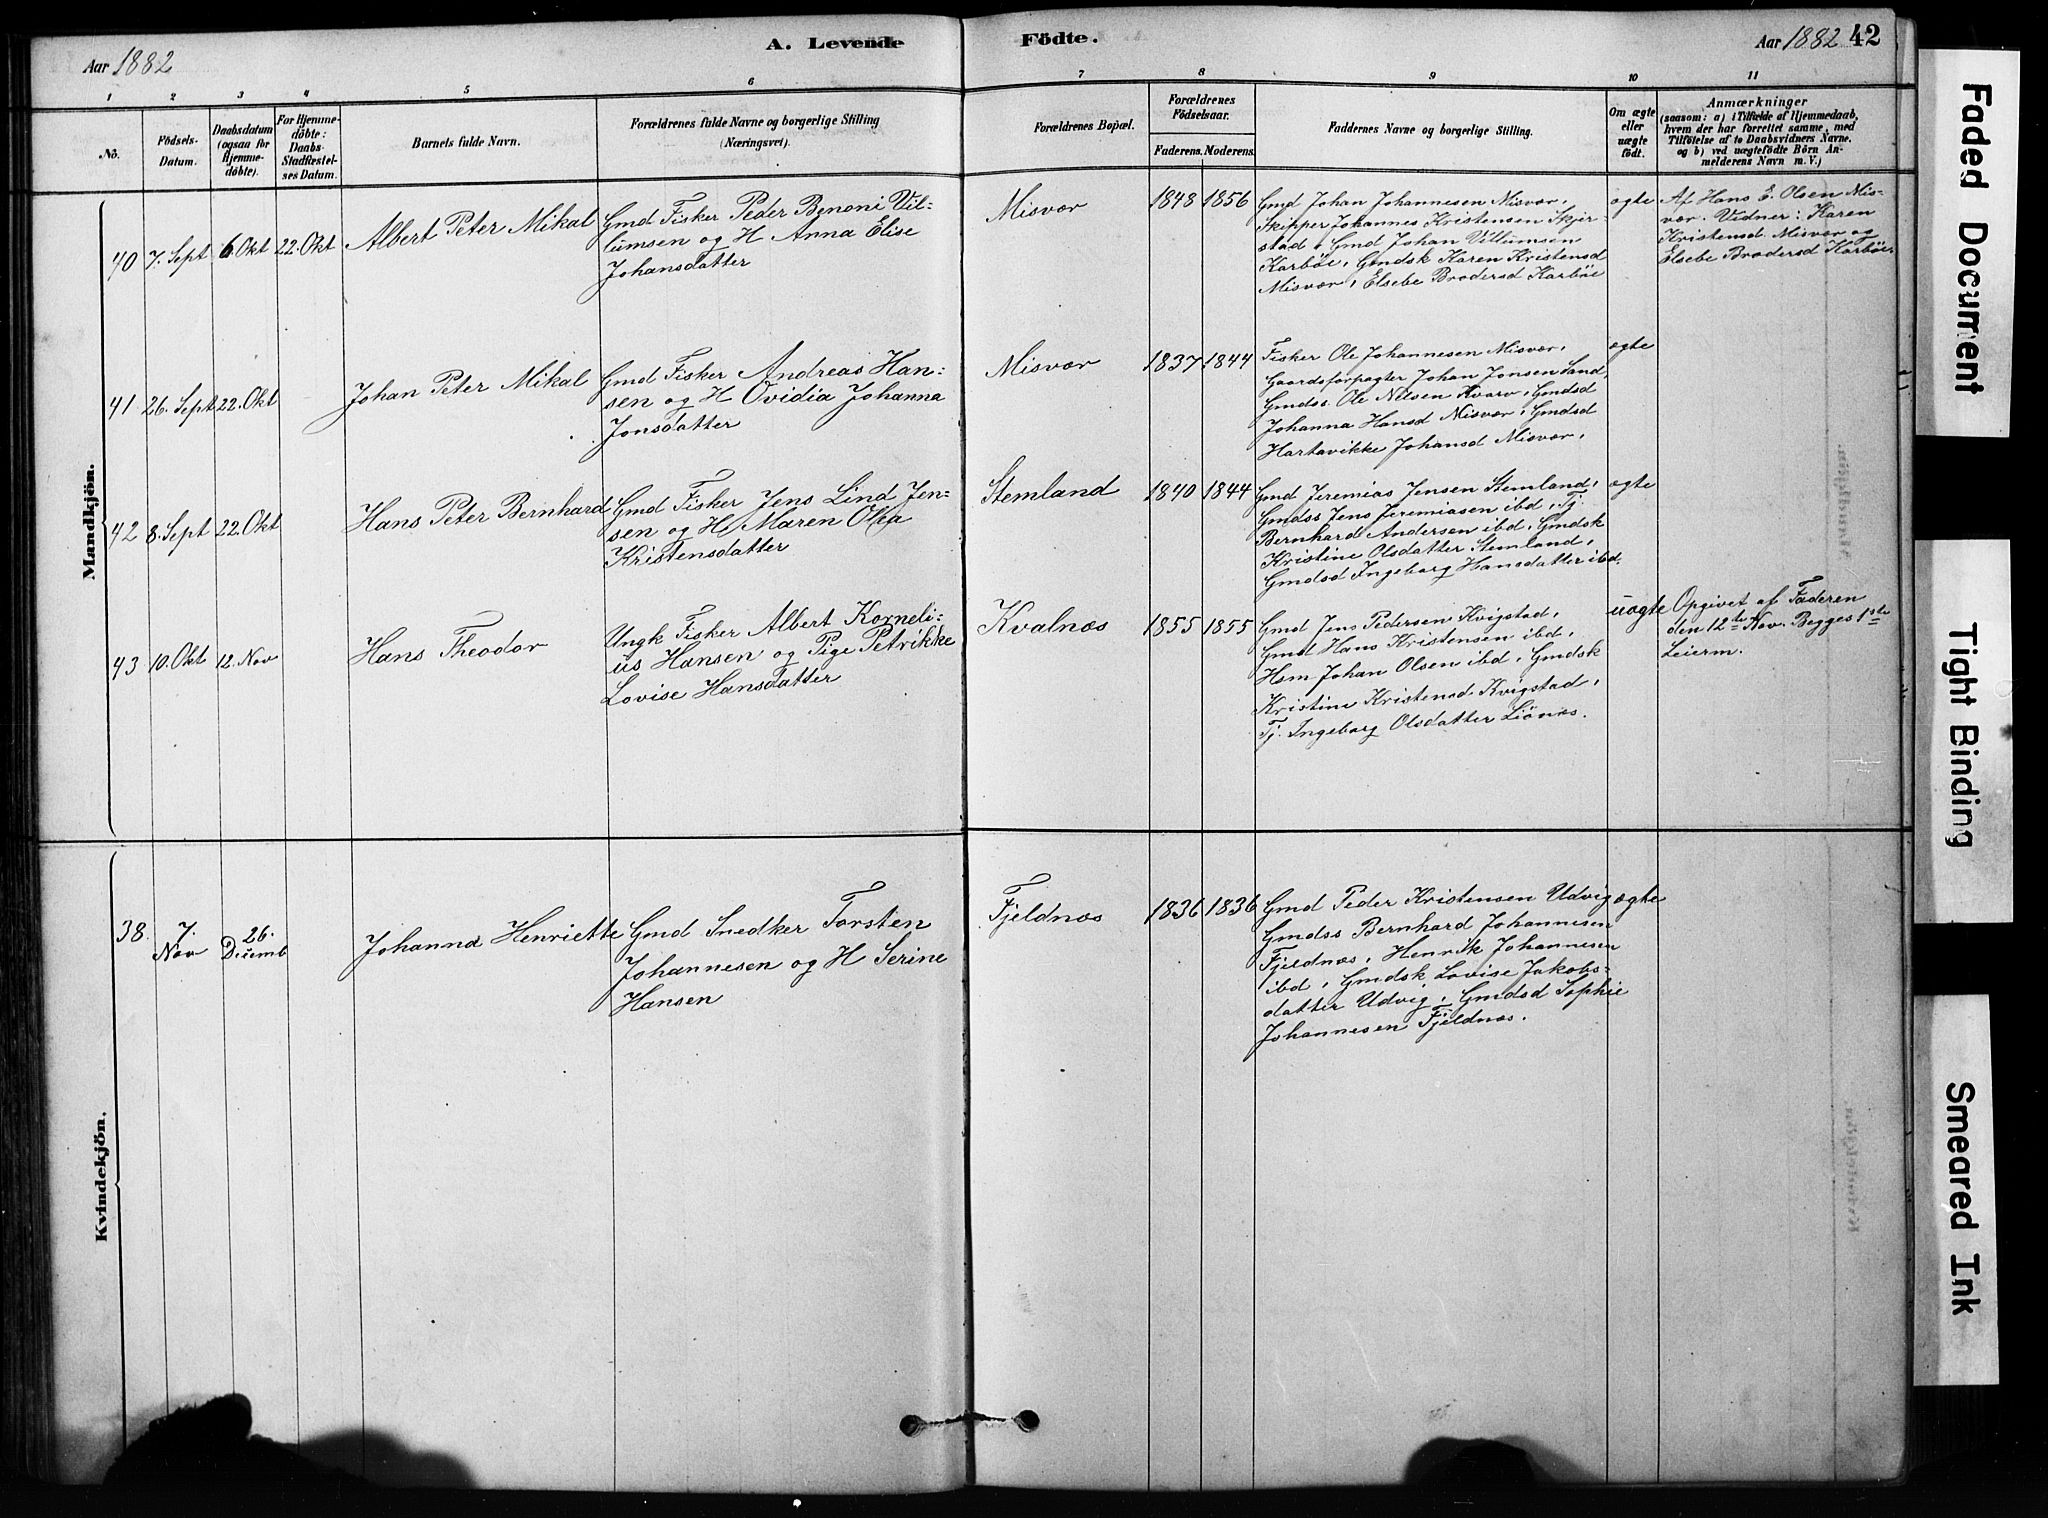 Aar 1882
A. Levende
Födte.
Aar 1882
42
1
2
3
4
5
6
7
8
9
10
11
No.
Födsels-
Datum.
Daabsdatum
(ogsaa for
Hjemme-
døbte).
For Hjemme-
døbte:
Daabs-
Stadfæstel-
ses Datum.
Barnets fulde Navn.
Forældrenes fulde Navne og borgerlige Stilling
(Næringsvei).
Forældrenes Bopæl.
Forældrenes
Födselsaar.
Faderens.
Moderens.
Faddernes Navne og borgerlige Stilling.
Om ægte
eller
uægte
født.
Anmærkninger
(saasom: a) i Tilfælde af Hjemmedaab,
hvem der har forrettet samme, med
Tilföielse af to Daabsvidners Navne.
og b) ved uægtefödte Börn An-
melderens Navn m. V.)
Mandkjön.
40
7. Sept
6. Okt
22. Okt
Albert Peter Mikal
Gmd Fisker Peder Benoni Vil-
lumsen og H Anna Elise
Johansdatter
Misvær
1848
1856
Gmd Johan Johannesen Misvær,
Skipper Johannes Kristensen Skjer-
stad, Gmd Johan Villumsen
Karbøe, Gmdsk Karen Kristensd
Misvær, Elsebe Brodersd Karbøe
ægte
Af Hans E. Olsen Mis-
vær. Vidner: Karen
Kristensd Misvær og
Elsebe Brodersd Karbøe.
41
26. Sept
22. Okt
Johan Peter Mikal
Gmd Fisker Andreas Han-
sen og H Ovidia Johanna
Jonsdatter
Misvær
1837
1844
Fisker Ole Johannesen Misvær,
Gaardsforpagter Johan Jonsen Sand,
Gmdss Ole Nilsen Kvarv, Gmdsd
Johanna Hansd Misvær, Gmdsd
Hartavikke Johansd Misvær,
ægte
42
8. Sept
22. Okt
Hans Peter Bernhard
Gmd Fisker Jens Lind Jen-
sen og H Maren Olea
Kristensdatter
Stemland
1840
1844
Gmd Jeremias Jensen Stemland,
Gmdss Jens Jeremiasen ibd, Tj
Bernhard Andersen ibd, Gmdsk
Kristine Olsdatter Stemland,
Gmdsd Ingeborg Hansdatter ibd.
ægte
43
10. Okt
12. Nov
Hans Theodor
Ungk Fisker Albert Korneli-
us Hansen og Pige Petrikke
Lovise Hansdatter
Kvalnæs
1855
1855
Gmd Jens Pedersen Kvigstad,
Gmd Hans Kristensen ibd,
Hsm Johan Olsen ibd, Gmdsk
Kristine Kristensd Kvigstad,
Tj. Ingeborg Olsdatter Liönæs.
uægte
Opgivet af Faderen
den 12te Nov. Begges 1ste
Leierm.
Kvindekjön.
38.
7.
Nov
26.
Decemb
Johanna Henriette
Gmd Snedker Torsten
Johannesen og H Serine
Hansen
Fjeldnæs
1836
1836
Gmd Peder Kristensen Udvig
Gmdss Bernhard Johannesen
Fjeldnæs, Henrik Johannesen
ibd, Gmdsk Lovise Jakobs-
datter Udvig, Gmdsd Sophie
Johannesen Fjeldnæs.
ægte
Faded Document
Tight Binding
Smeared Ink